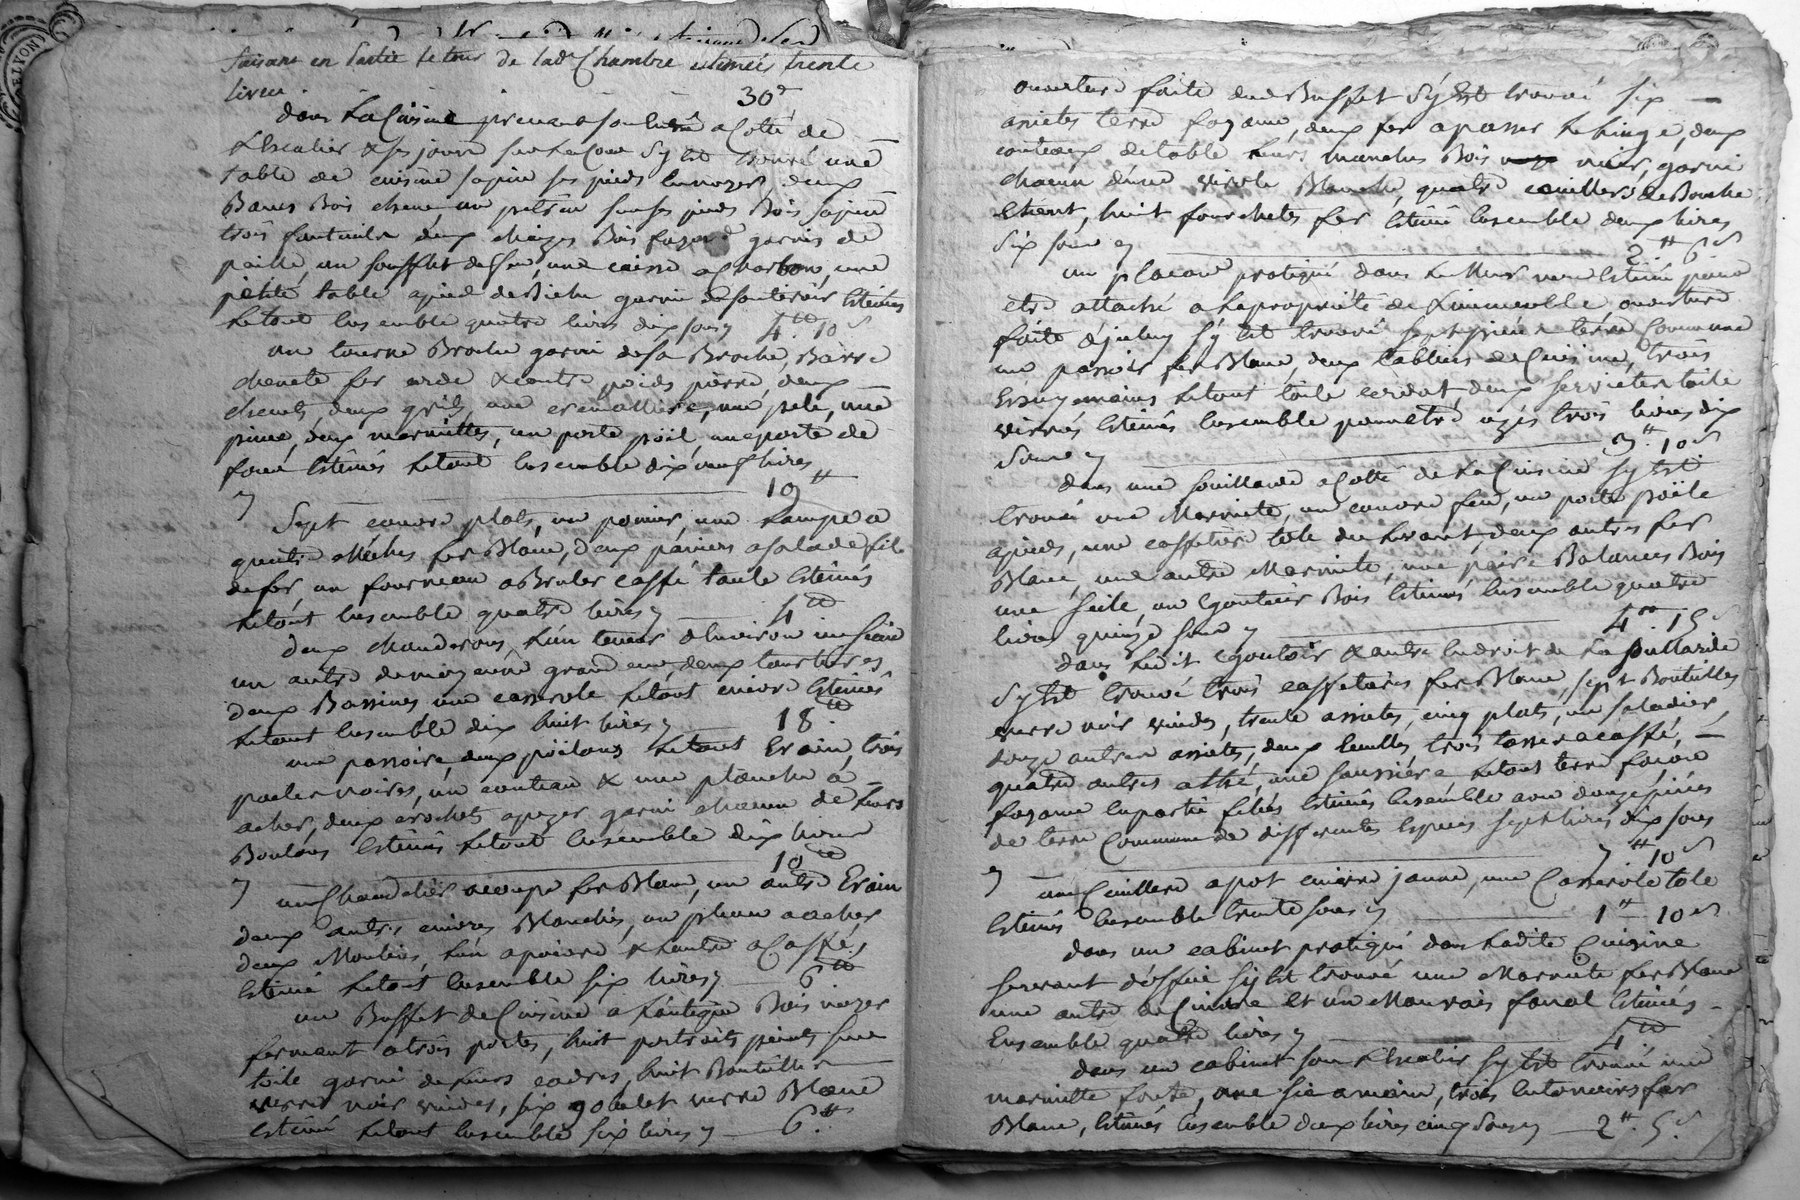 DELYON
faisant en partie le tour de lad. Chambre estimés trente
livres 30#
dans la Cuisine prenant sa lumière a Cotté de
L'Escalier & ses jours sur la Cour s'y est trouvé une
table de cuisine sapin ses pieds bois noyer, deux
Bancs Bois chene un petrin sur ses pieds Bois sapin
trois fauteuils deux chaizes Bois garnis de
paille, un soufflet, une caisse a Charbon, une
petite table a pied de Biche garnie de son tiroir Estimés
Le tout Ensemble quatre livres dix sous 4# 10s
un tourne Broche garni de sa Broche, Barre
chenete fer corde & contre poids pierre, deux
chenets, deux grils, une cremaillere, une pele, une
pince, deux marmittes, un porte poil une porte de
four Estimés Le tout Ensemble dix neuf livres
19#
Sept couvre plats, un panier, une Lampe a
quatre Méches fer Blanc, deux paniers a salade fil
de fer, un fourneau a Bruler caffé taule Estimés
Le tout Ensemble quatre livres 4#
deux chauderons L'un tenant Environ un seau
un autre de moyenne grandeur, deux tourtieres,
deux Bassines une casserole Le tout cuivre Estimés
Le tout Ensemble dix huit livres 18#
une passoire, deux poëlons Le tout Erain, trois
poeles noires, un couteau & une planche a
acher, deux crochets a pezer garni chacun de Leurs
Boulons Estimés Le tout Ensemble dix livres
10#
un Chandelier fer Blanc, un autre Erain
deux autres cuivres Blanchis, un pleau a acher,
deux Moulins, L'un a poivre & L'autre a Caffé,
Estimé Le tout Ensemble six livres 6#
un Buffet de Cuisine a L'antique Bois noyer
fermant a trois portes, huit portraits peints sur
toile garni de Leurs cadres, huit Bouteilles
verre noir vuides, six gobelet verre Blanc
Estimé Le tout Ensemble six livres 6#
ouverture faite dud. Buffet s'y est trouvé six
assietes terre fayance, deux fer a passer Le Linge, deux
couteaux de table Leurs manches Bois noir, garni
chacun d'une virole Blanche, quatre cuilleres de Bouche
Etient, huit fourchetes fer Estimé Ensemble deux livres
six sous 2# 6s
un placard pratiqué dans Le Mur Estimé pour
etre attaché a La propriété de L'immeuble ouverture
faite d'jceluy s'y est trouvé sept pieces terre Commune
une passoir fer Blanc, deux tabliers de Cuisine, trois
Essuy mains Le tout toile, deux serviettes toile
Estimés Ensemble trois livres dix
sous 3# 10s
dans une souillarde a Cotté de La Cuisine s'y est
trouvé une Marmite, un couvre feu, un porte poële
a pieds, une caffetiere tole du Levant, deux autres fer
Blanc, une autre Marmite, une paire Balances Bois
une seille, un Egoutoir Bois Estimés Ensemble quatre
livres quinze sous 4# 15s
dans Ledit Egoutoir & autre Endroit de La souillarde
s'y est trouvé trois caffetieres fer Blanc, sept Bouteilles
verre noir vuides, trente assietes, cinq plats, un saladier,
douze autres assietes, deux Ecuelles, trois tasses a caffé,
quatre autres a thé, une saussiere Le tout terre facon
fayance En partie felés Estimés Ensemble avec douze pieces
de terre Commune de differentes Especes sept livres dix sous
7# 10s
une Cuillere a pot cuivre jaune, une Casserole tole
Estimés Ensemble trente sous 1# 10s
dans un cabinet pratiqué dans Ladite Cuisine
servant d'office s'y est trouvé une Marmite fer Blanc
une autre de Cuivre Et un Mauvais fanal Estimés
Ensemble quatre livres 4#
dans un cabinet sous L'Escalier s'y est trouvé une
marmitte fonte, une sie a main, trois Entonoirs fer
Blanc, Estimés Ensemble deux livres cinq sous 2# 5s